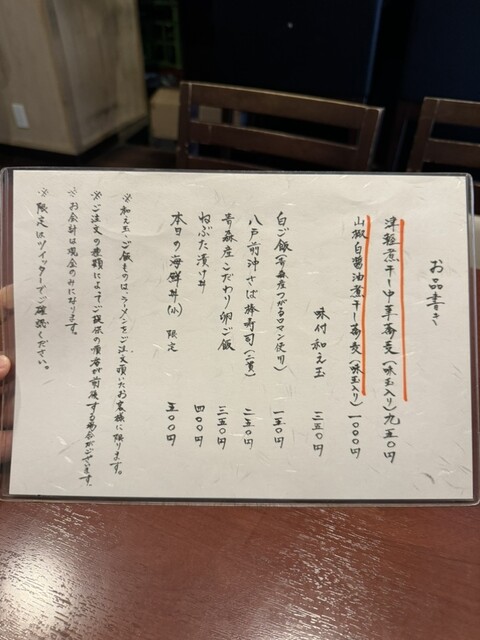 お品書き
津軽煮干し中華蕎麦（味玉入り）九五〇円
山椒白醤油煮干し蕎麦（味玉入り）一〇〇〇円
味付和え玉 三五〇円
白ご飯（青森産つがるロマン使用） 一五〇円
八戸前沖さば棒寿司（二貫） 二五〇円
青森産こだわり卵ご飯 三五〇円
ねぶた漬け丼 四〇〇円
本日の海鮮丼（小） 限定 五〇〇円
※和え玉、ご飯ものは、ラーメンをご注文頂いたお客様に限ります。
※ご注文の種類によってご提供の順番が前後する場合がございます。
※お会計は現金のみになります。
※限定はツイッターでご確認ください。